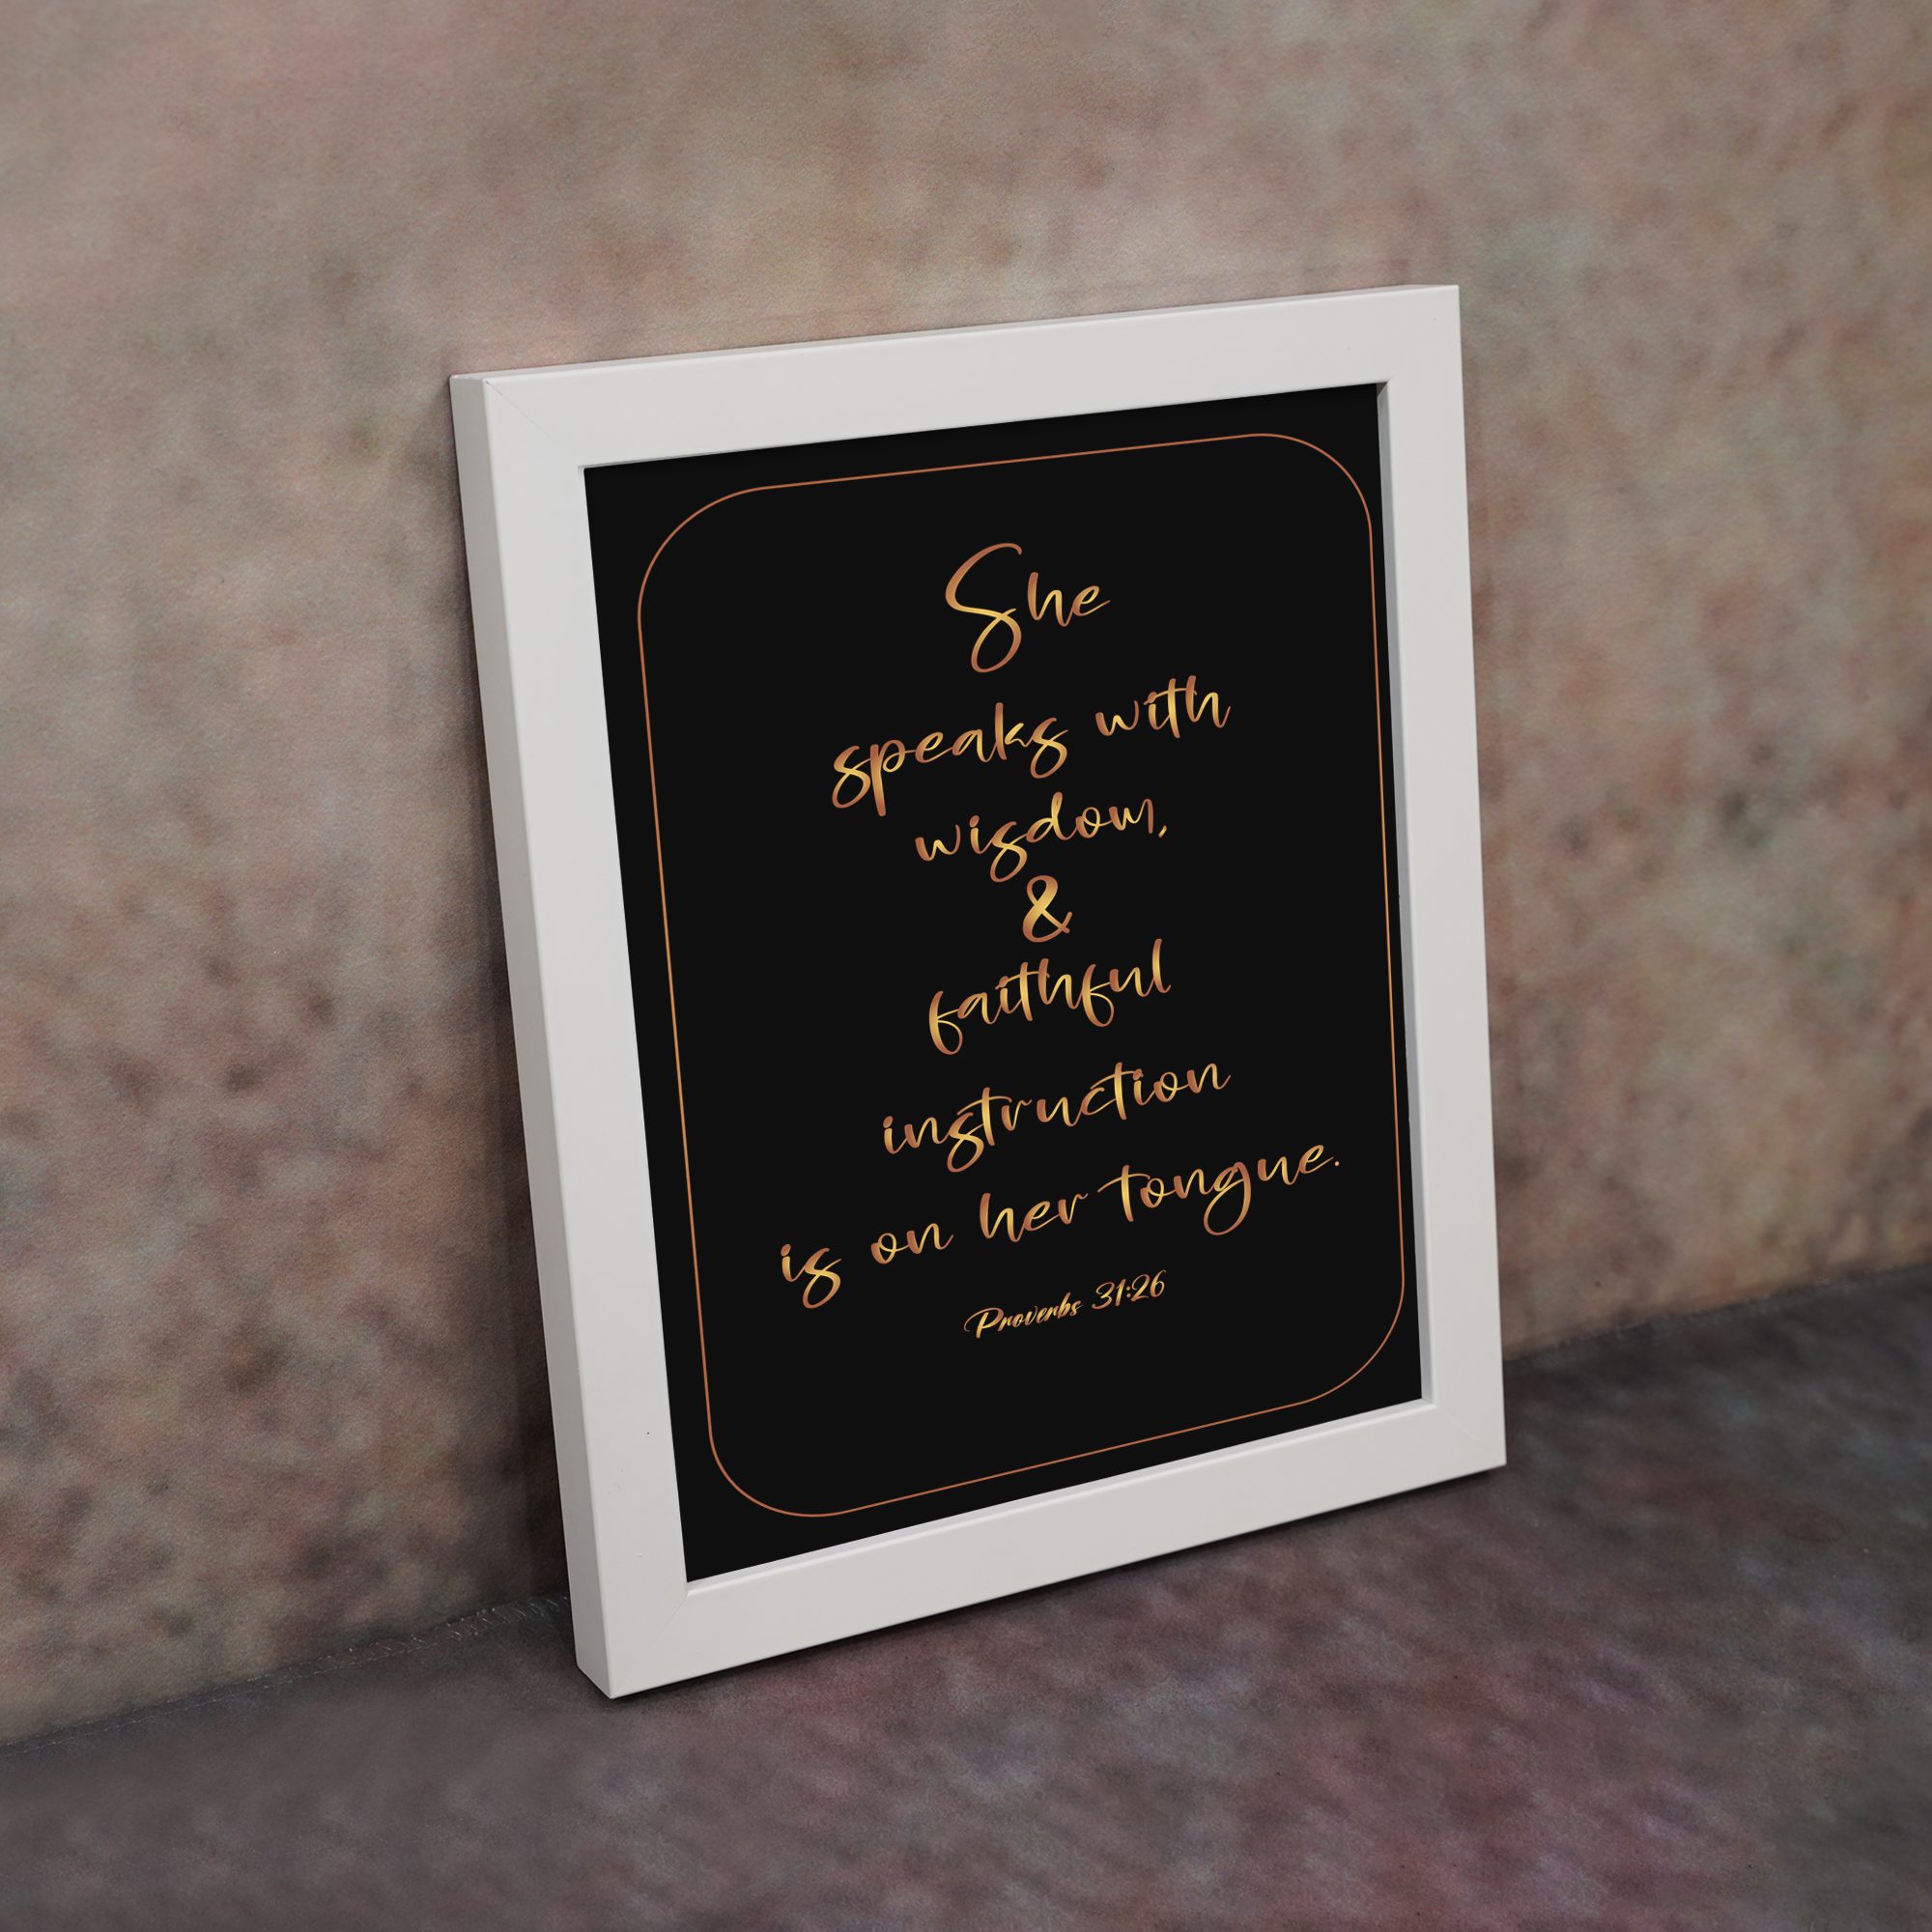 She
speaks with
wisdom,
&
faithful
instruction
is on her tongue.
Proverbs 31:26